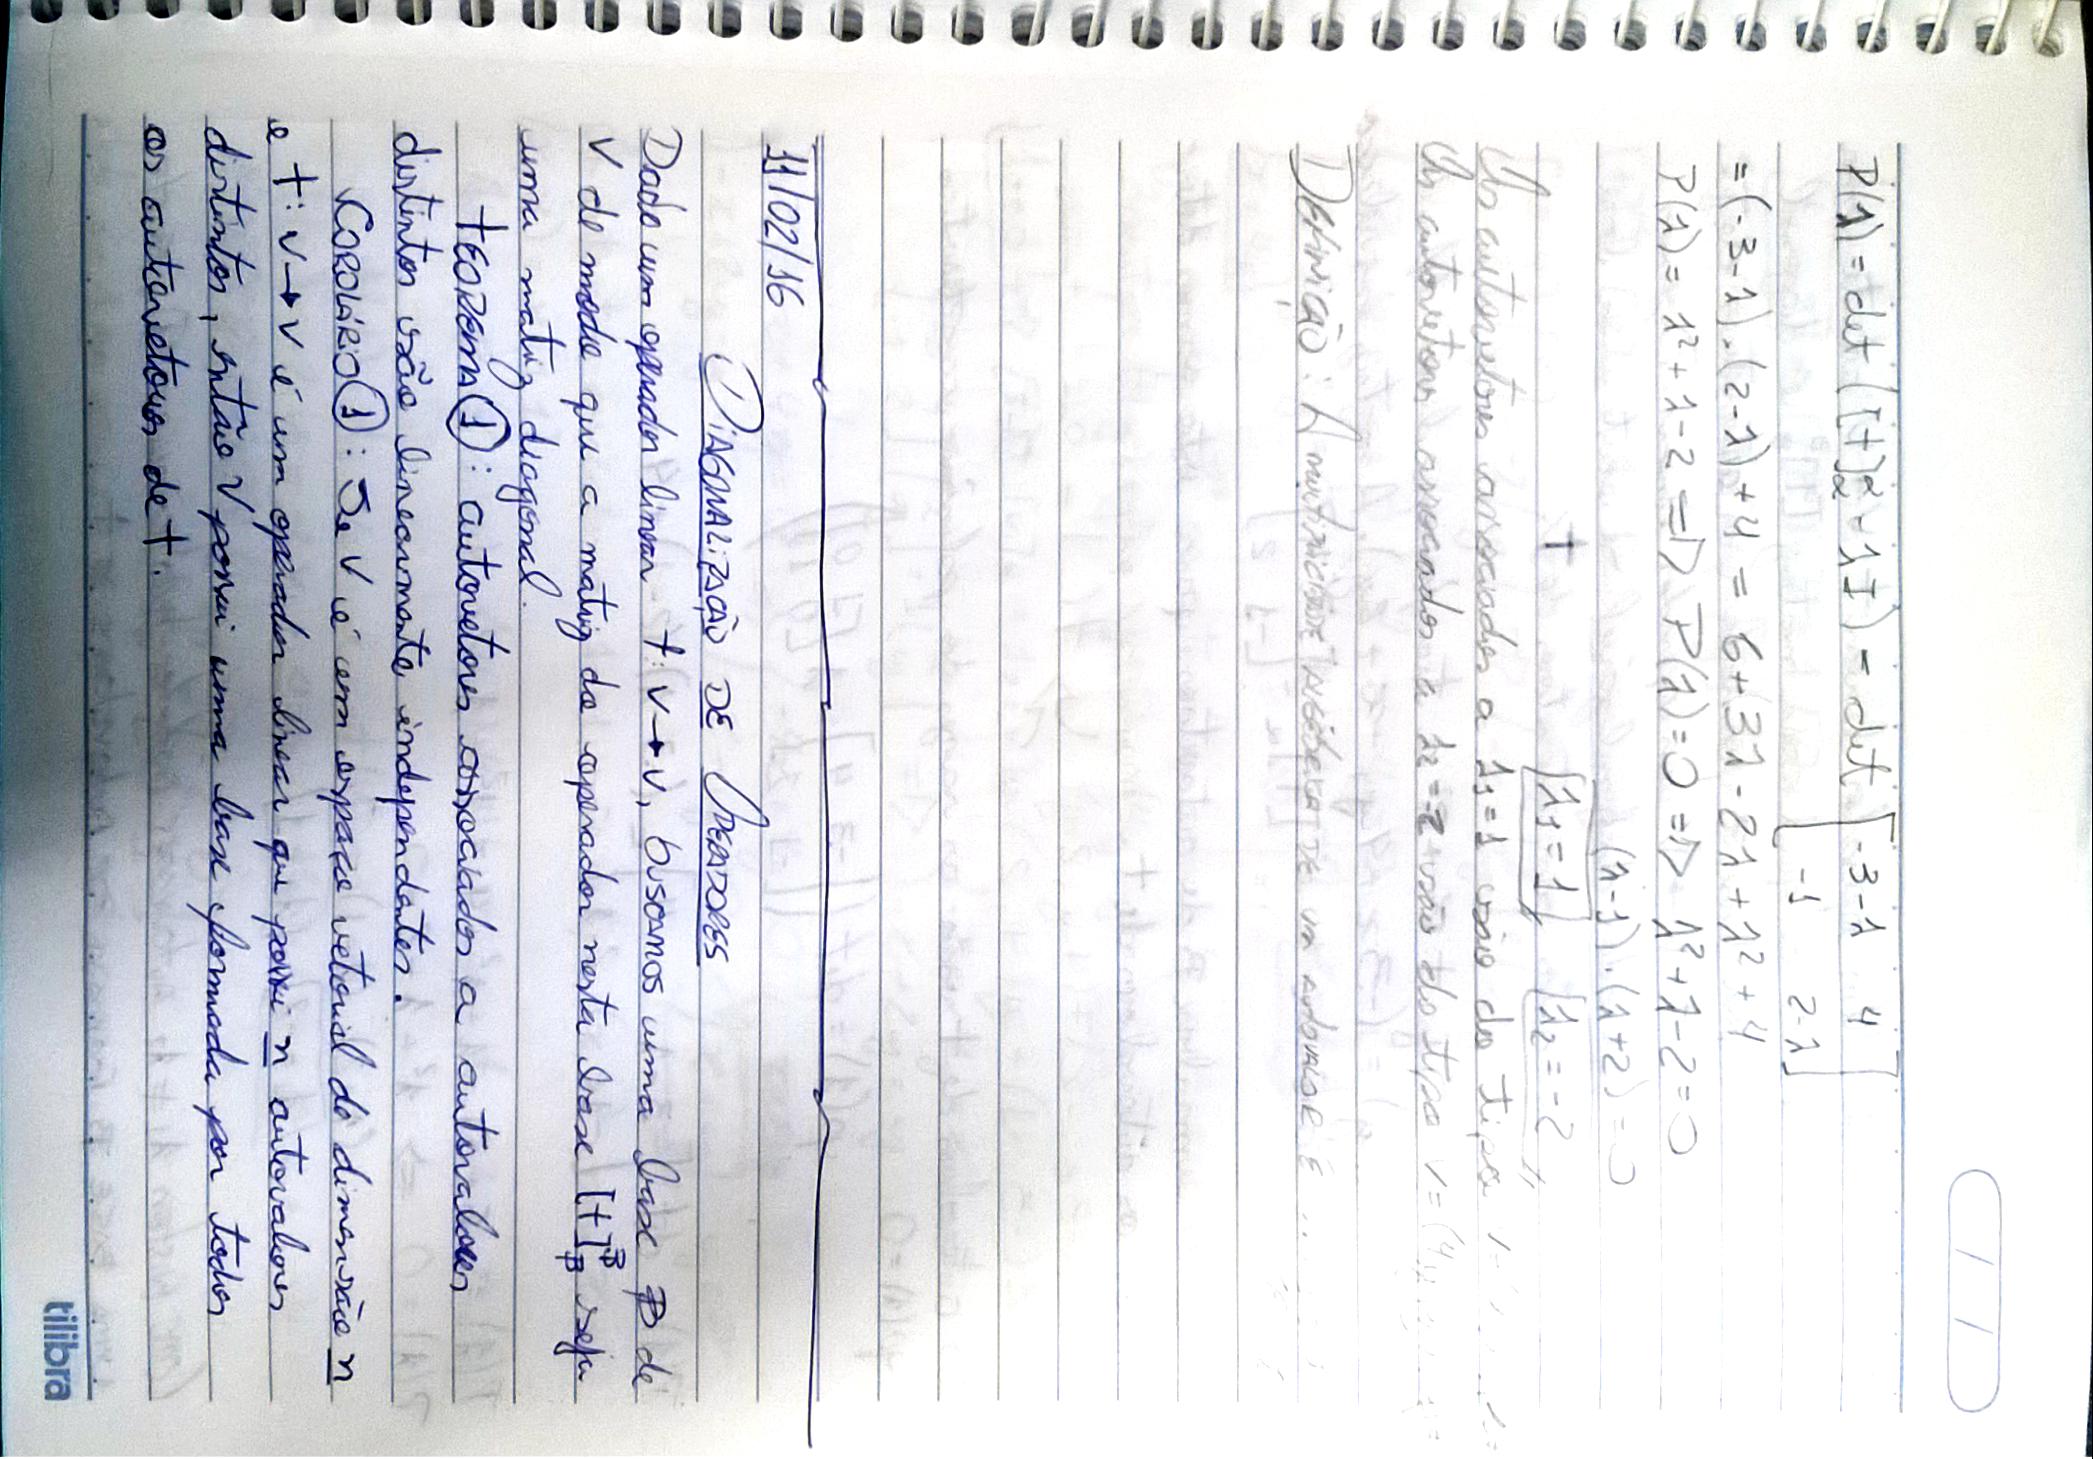 P(λ) = det ([T]α^α - λI) = det [-3-λ 4
-1 2-λ]
= (-3-λ).(2-λ)+4 = 6+3λ-2λ+λ²+4
P(λ) = λ²+λ-2 => P(λ)=0 => λ²+λ-2=0
(λ-1).(λ+2)=0
T λ1=1 λ2=-2
Os autovetores associados a λ1=1 são do tipo
Os autovetores associados a λ2=-2 são do tipo v=(4y,
DEFINIÇÃO: A MULTIPLICIDADE ALGÉBRICA DE UM AUTOVALOR É
11/02/16
DIAGONALIZAÇÃO DE OPERADORES
Dado um operador linear T: V→V, BUSCAMOS uma base B de
V de modo que a matriz do operador nesta base [T]B^B seja
uma matriz diagonal.
TEOREMA 1: autovetores associados a autovalores
distintos são linearmente independentes.
COROLÁRIO 1: Se V é um espaço vetorial de dimensão n
e T: V→V é um operador linear que possui n autovalores
distintos, então V possui uma base formada por todos
os autovetores de T.
tilibra